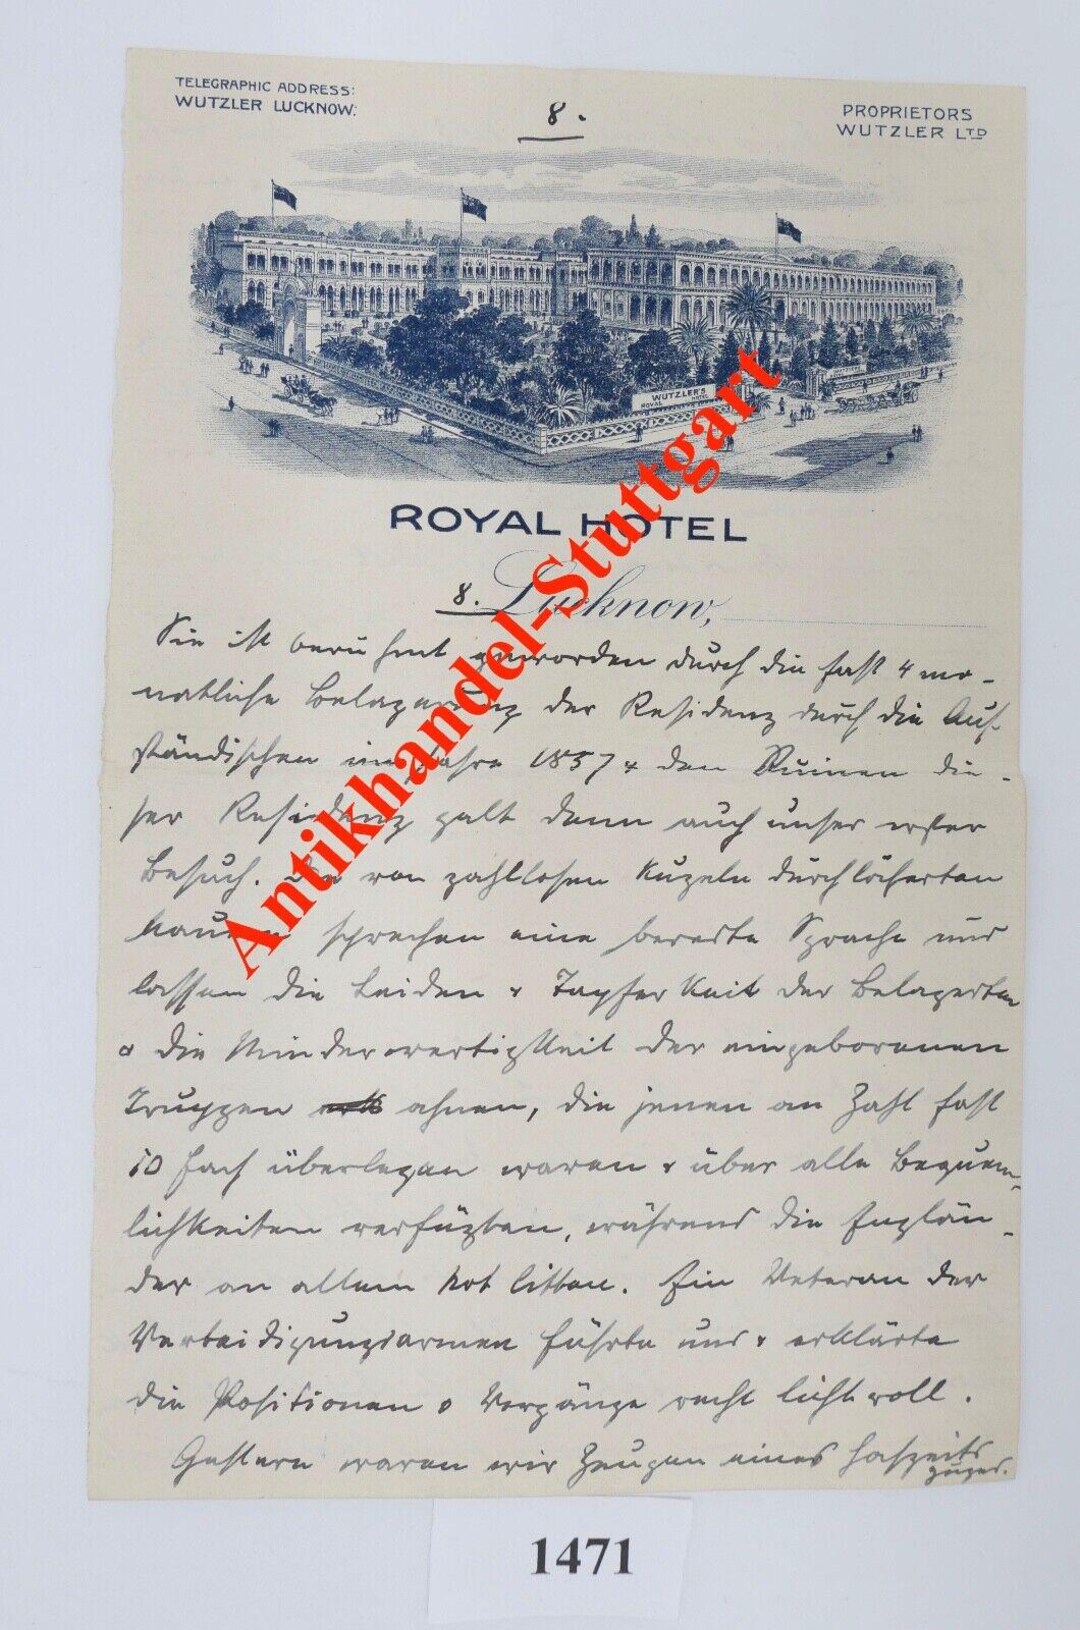 TELEGRAPHIC ADDRESS:
WUTZLER LUCKNOW:
8.
PROPRIETORS
WUTZLER LTD
WUTZLER'S
ROYAL HOTEL
ROYAL HOTEL
8. Lucknow,
Sie ist berühmt geworden durch die fast 4 mo-
natliche Belagerung der Residenz durch die Auf-
ständischen im Jahre 1857 & den Ruinen die-
ser Residenz galt denn auch unser erster
Besuch. Die von zahllosen Kugeln durchlöcherten
Mauern sprechen eine beredte Sprache und
lassen die Leiden & Tapferkeit der Belagerten
& die Minderwertigkeit der eingeborenen
Truppen ahnen, die jenen an Zahl fast
10 fach überlegen waren & über alle Bequem-
lichkeiten verfügten, während die Englän-
der an allem Not litten. Ein Veteran der
Verteidigungsarmee führte uns & erklärte
die Positionen & Vorgänge recht lichtvoll.
Gestern waren wir Zeugen eines Hochzeits
zuges.
Antikhandel-Stuttgart
1471